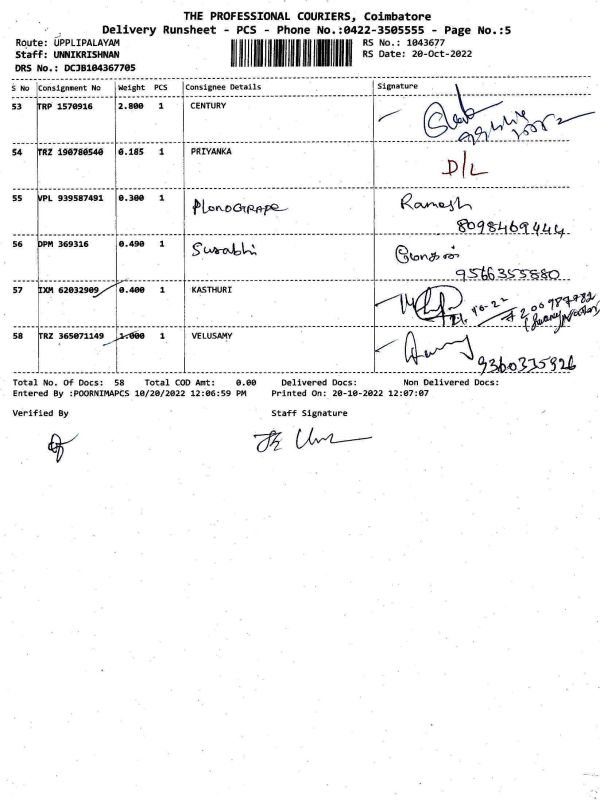 THE PROFESSIONAL COURIERS, Coimbatore
Delivery Runsheet - PCS - Phone No.:0422-3505555 - Page No.:5
Route: UPPLIPALAYAM RS No.: 1043677
Staff: UNNIKRISHNAN RS Date: 20-Oct-2022
DRS No.: DCJB104367705
S No Consignment No Weight PCS Consignee Details Signature
53 TRP 1570916 2.800 1 CENTURY
54 TRZ 190780540 0.185 1 PRIYANKA D/L
55 VPL 939587491 0.300 1 PLONOGRAPE Ramesh
8098469444
56 DPM 369316 0.490 1 Surabhi மோகன்
9566355880
57 IXM 62032909 0.400 1 KASTHURI
58 TRZ 365071149 1.000 1 VELUSAMY
9360335926
Total No. Of Docs: 58 Total COD Amt: 0.00 Delivered Docs: Non Delivered Docs:
Entered By :POORNIMAPCS 10/20/2022 12:06:59 PM Printed On: 20-10-2022 12:07:07
Verified By Staff Signature